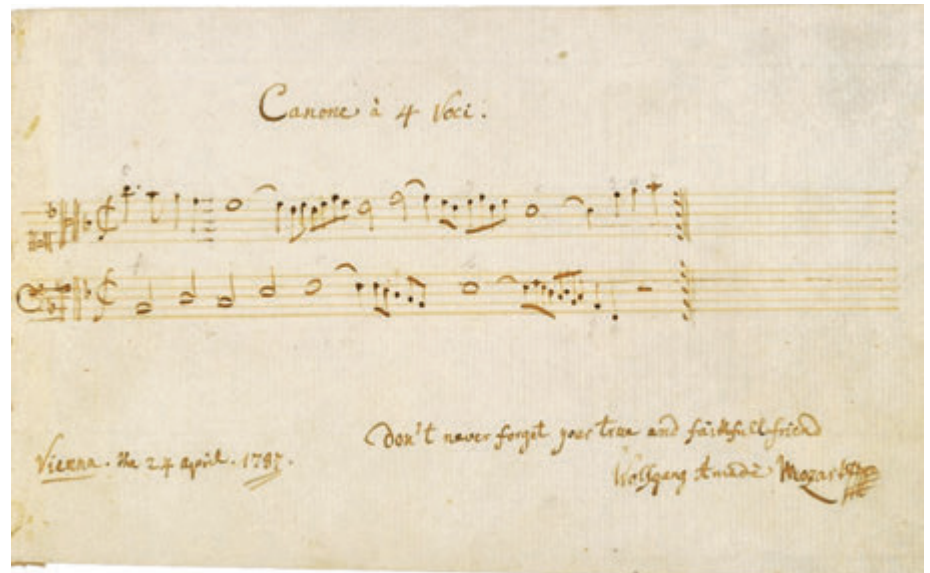 Canone à 4 Voci.
Don't never forget your true and faithfull friend
Vienna. the 24 april. 1787.
Wolfgang Amadè Mozart